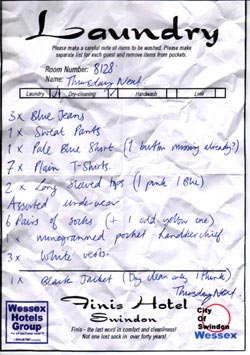 Laundry
Please make a careful note of items to be washed. Please make
separate list for each guest and remove items from pockets.
Room Number: 8128
Name: Thursday Next.
Laundry Dry-cleaning Handwash Line
3x Blue Jeans
1x Sweat Pants
1x Pale Blue Shirt (1 button missing already?)
7x Plain T-Shirts.
2x Long Sleeved tops (1 pink 1 Blue)
Assorted underwear
6 Pairs of socks (+ 1 odd yellow one)
1x monogrammed pocket handkerchief
3x White vests.
1x Black Jacket (Dry clean only I think)
Thursday Next.
Wessex
Hotels
Group
Finis Hotel
Swindon
Finis - the last word in comfort and cleanliness!
Not one lost sock in over forty years!
City
Of
Swindon
Wessex